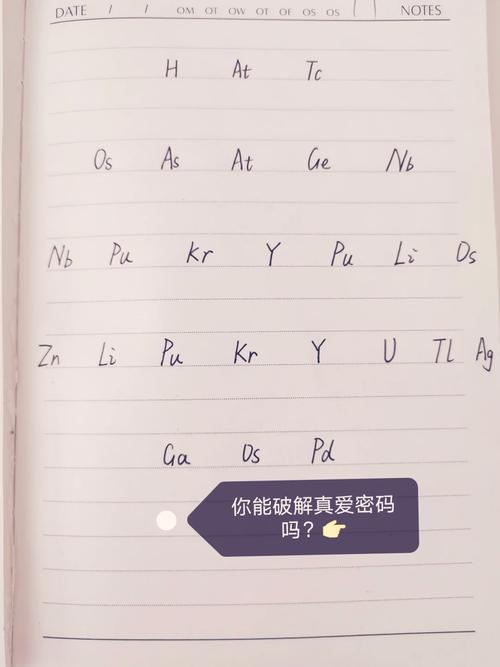 DATE / / NOTES
H At Tc
Os As At Ge Nb
Nb Pu Kr Y Pu Li Os
Zn Li Pu Kr Y U Tl Ag
Ga Os Pd
你能破解真爱密码
吗？👉